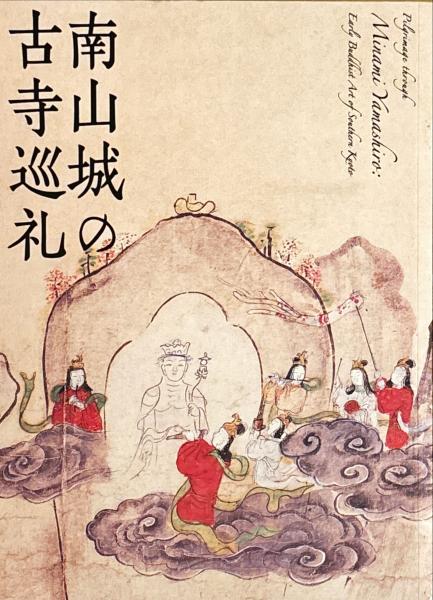 南山城の
古寺巡礼
Pilgrimage through
Minami Yamashiro:
Early Buddhist Art of Southern Kyoto